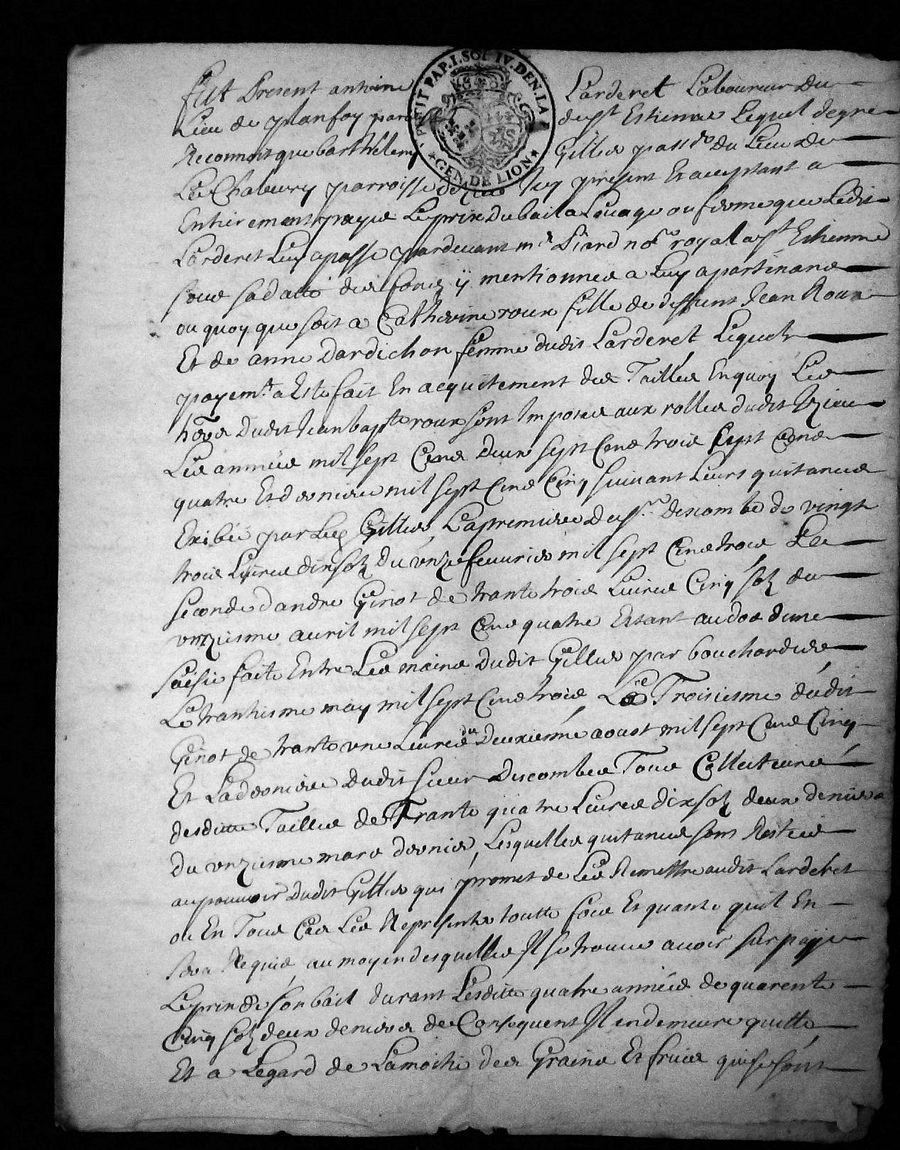 PETIT PAP. I. SOL IV. DEN. LA F.
GEN. DE LION
Fut Present antoine Larderet Laboureur du
Lieu de planfoy paro de st Estienne Lequel de gre
Reconnoit que barthelemy Gillier pass.r du Lieu de
La Chabury parroisse de Icy present Et acceptant a
Entierement paye Le prix du bail a Louage ou ferme que Ledit
Larderet Luy a passe pardevant m.e Liard no.re royal a st Etienne
sous sa datte des fonds y mentionnes a Luy apartenans
ou quoy que soit a Catherine roux fille de deffunt Jean Roux
Et de anne dardichon femme dudit Larderet Lequel
payem.t a Este fait En acquitement des Tailles En quoy Les
hoirs dudit Jean bapt.e roux sont Imposes aux rolles dudit Izieu
Les années mil sept Cens deux sept Cens trois sept Cens
quatre Et derniere mil sept Cens Cinq suivant Leurs quitances
Exibée par Led Gillier La premiere du s.r descombe de vingt
trois Livres dix sols du unze feuvrier mil sept Cens trois La
seconde d'andre Ginot de trante trois Livres Cinq sols du
unziesme avril mil sept Cens quatre Estant au dos d'une
saisie faite Entre Les mains dudit Gillier par bouchardier
Le trantiesme may mil sept Cens trois La Troisiesme dudit
Ginot de trante une Livres du Deuxiéme aoust mil sept Cens Cinq
Et La derniere dudit sieur Descombes Tous Collecteurs
desdittes Tailles de Trante quatre Livres dix sols deux deniers
du unziesme mars dernier, Lesquelles quitances sont Restées
au pouvoir dudit Gillier qui promet de Les Remettre audit Larderet
ou En Tous Cas Les Representer toutte fois Et quante qu'il En
sera Requis au moyen desquelles Il se trouve avoir sur paye
Le prix de son bail durant Lesdittes quatre années de quarente
Cinq sols deux deniers de Consequent Il en demeure quitte
Et a Legard de La moitie des Grains Et fruis qui se sont